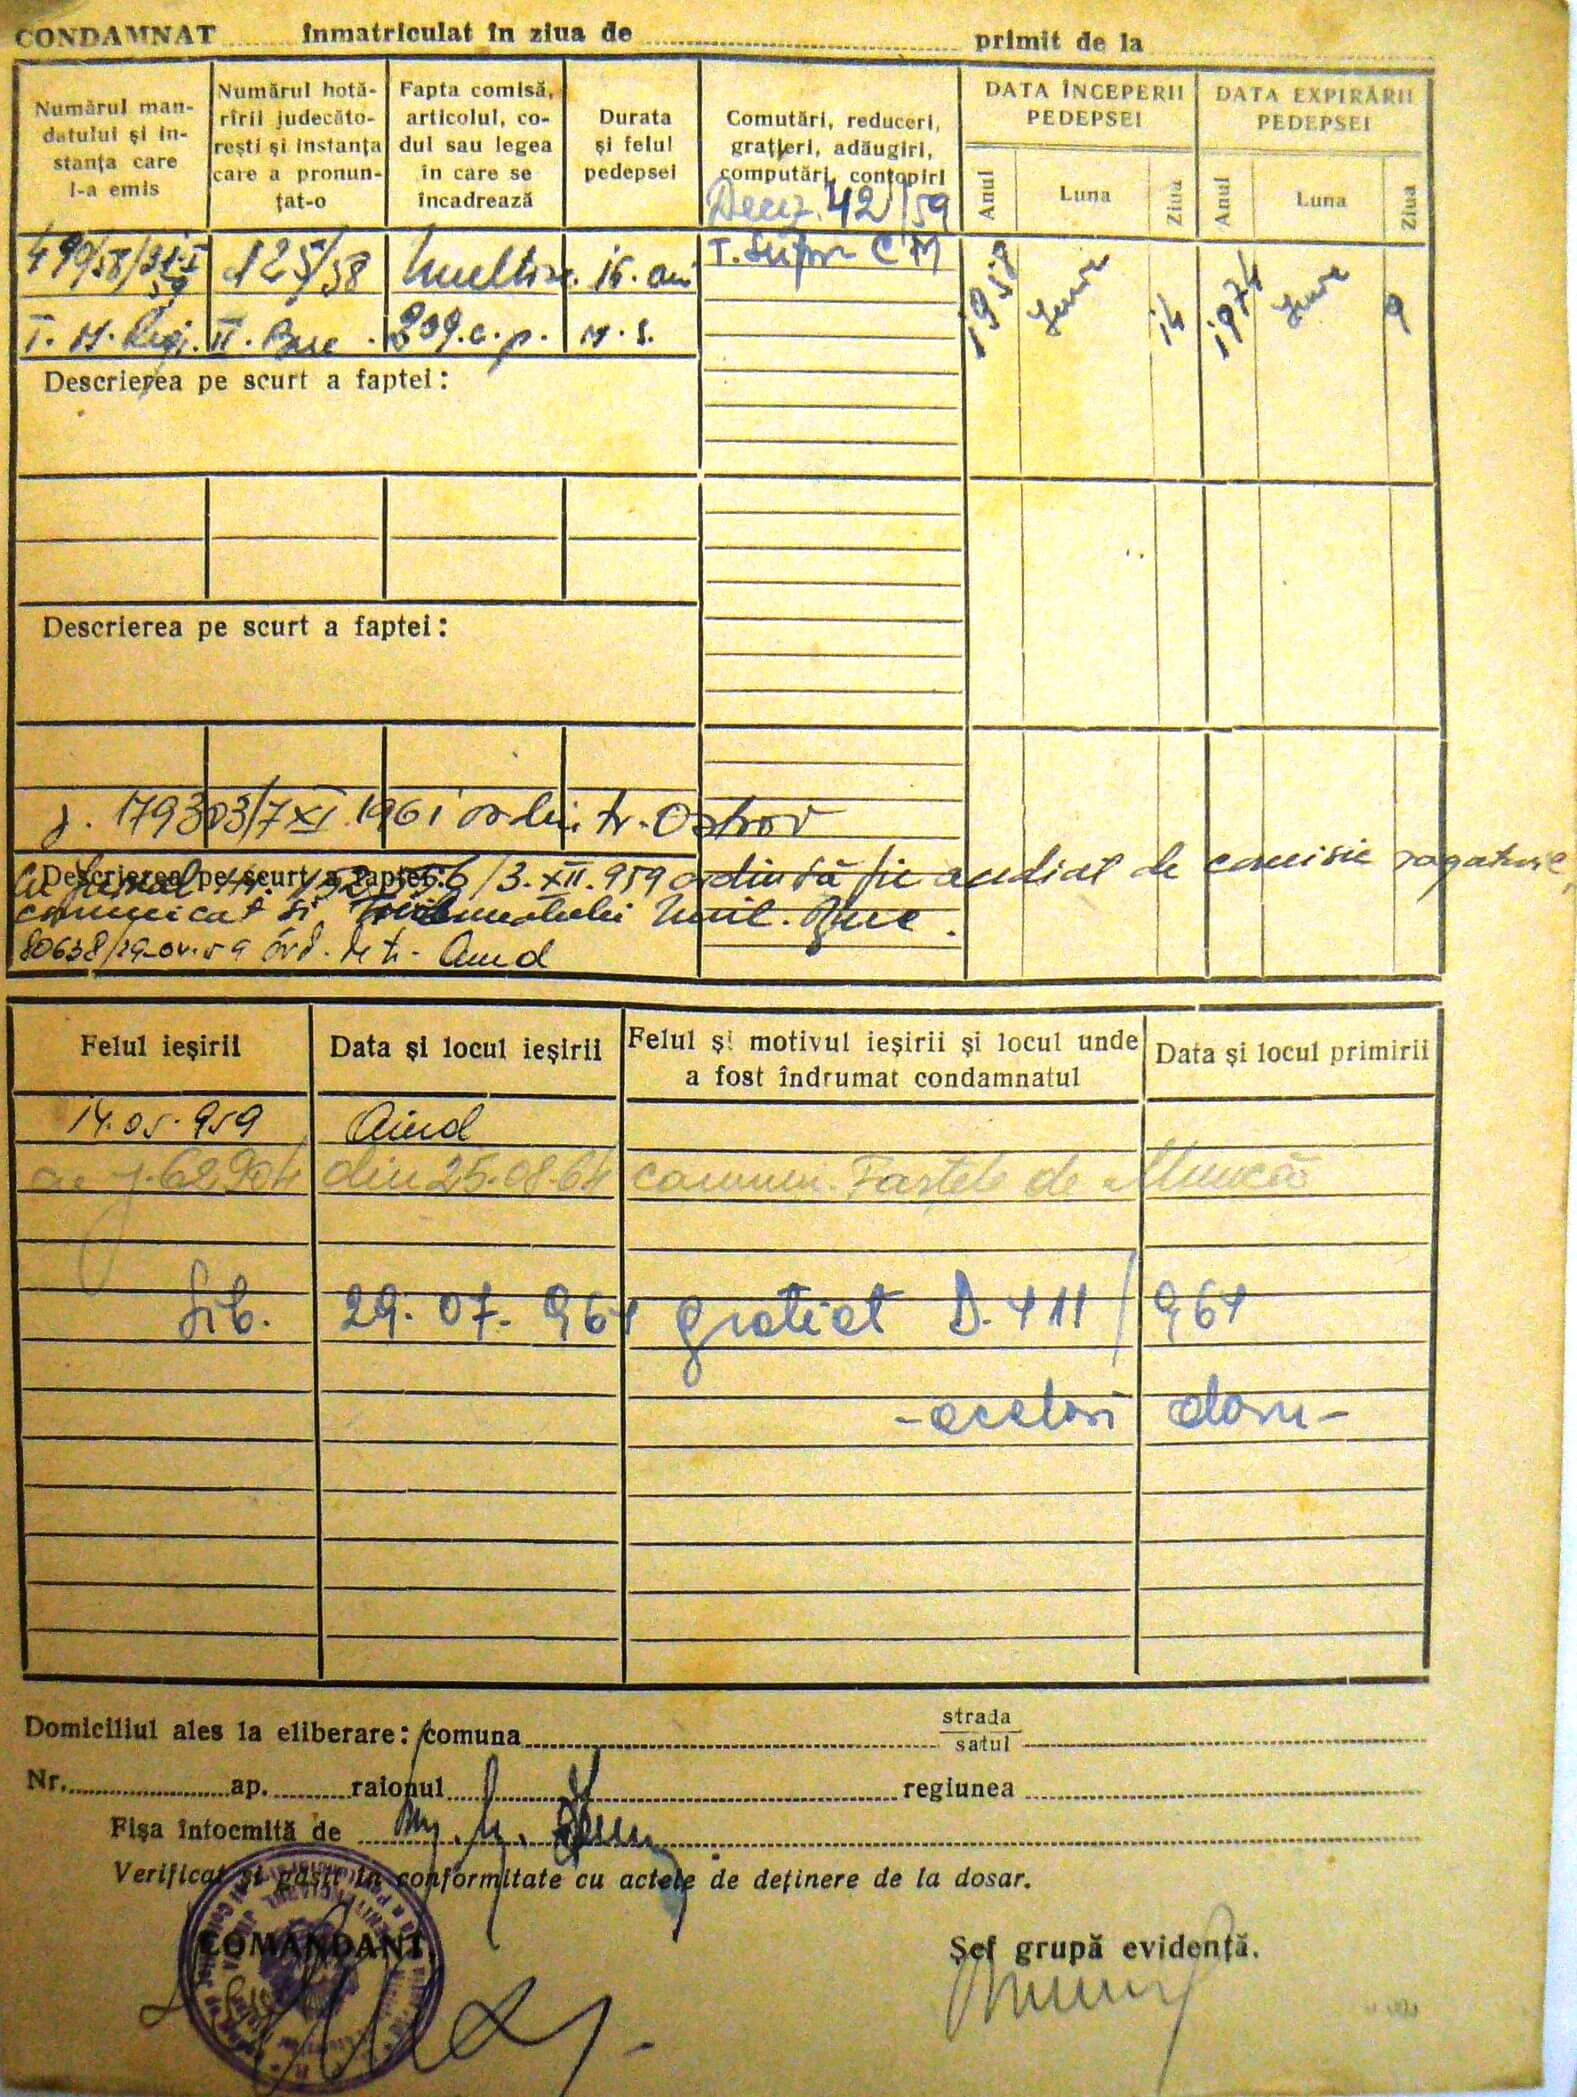 CONDAMNAT ........ înmatriculat în ziua de ........................ primit de la
Numărul mandatului și instanța care l-a emis
Numărul hotărîrii judecătorești și instanța care a pronunțat-o
Fapta comisă, articolul, codul sau legea în care se încadrează
Durata și felul pedepsei
Comutări, reduceri, grațieri, adăugiri, computări, contopiri
DATA ÎNCEPERII PEDEPSEI
DATA EXPIRĂRII PEDEPSEI
Anul Luna Ziua Anul Luna Ziua
42/59
T. Supr. C M
125/58
16. ani
1958 14 1974 9
T. M. II. Buc. 209. c. p. M. S.
Descrierea pe scurt a faptei:
Descrierea pe scurt a faptei:
179303/7 XI 1961 ordin tr. Ostrov
Descrierea pe scurt a faptei:
/3. XII. 959 ordin să fie audiat de comisie rogatorie,
comunicat și Tribunalului Mil. Buc.
80638/29-04-59 ord. de tr. Aiud
Felul ieșirii
Data și locul ieșirii
Felul și motivul ieșirii și locul unde a fost îndrumat condamnatul
Data și locul primirii
14.05.959 Aiud
62904 din 25.08.64 comun. Foștele de Muncă
Lib. 29.07.964 grațiat D. 411/964
Domiciliul ales la eliberare: comuna........................ strada
satul ........................
Nr. ............ ap. ........ raionul ........................ regiunea ........................
Fișa întocmită de ........................
Verificat și găsit în conformitate cu actele de deținere de la dosar.
COMANDANT,
Șef grupă evidență.